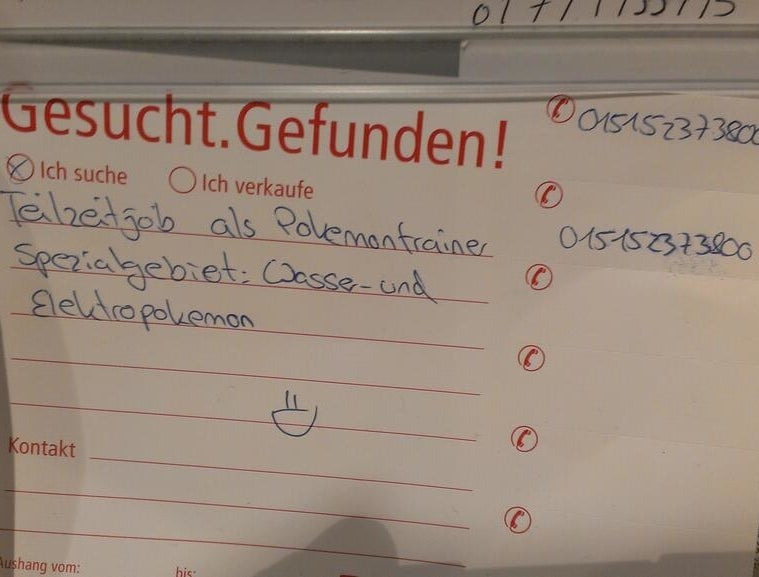 Gesucht.Gefunden!
015152373800
Ich suche
Ich verkaufe
Teilzeitjob als Pokemontrainer
015152373800
Spezialgebiet: Wasser- und
Elektropokemon
Kontakt
Aushang vom:
bis: